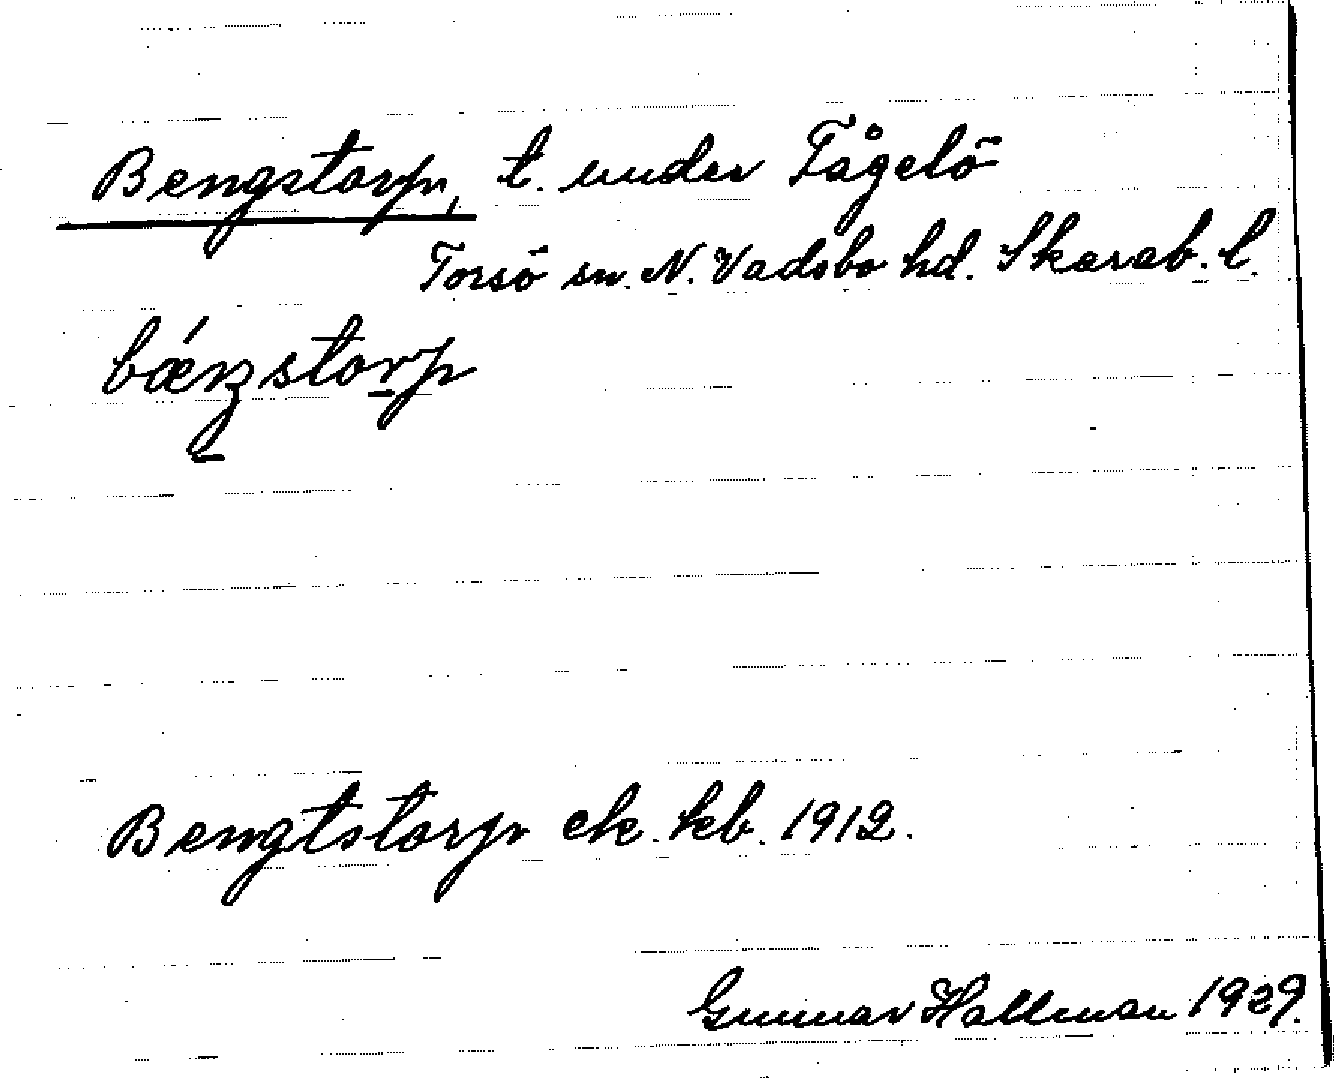 Bengstorp, t. under Fågelö
Torsö sn. N. Vadsbo hd. Skarab. l.
bǽŋstorp
Bengtstorp ek. kb. 1912.
Gunnar Hallman 1929.